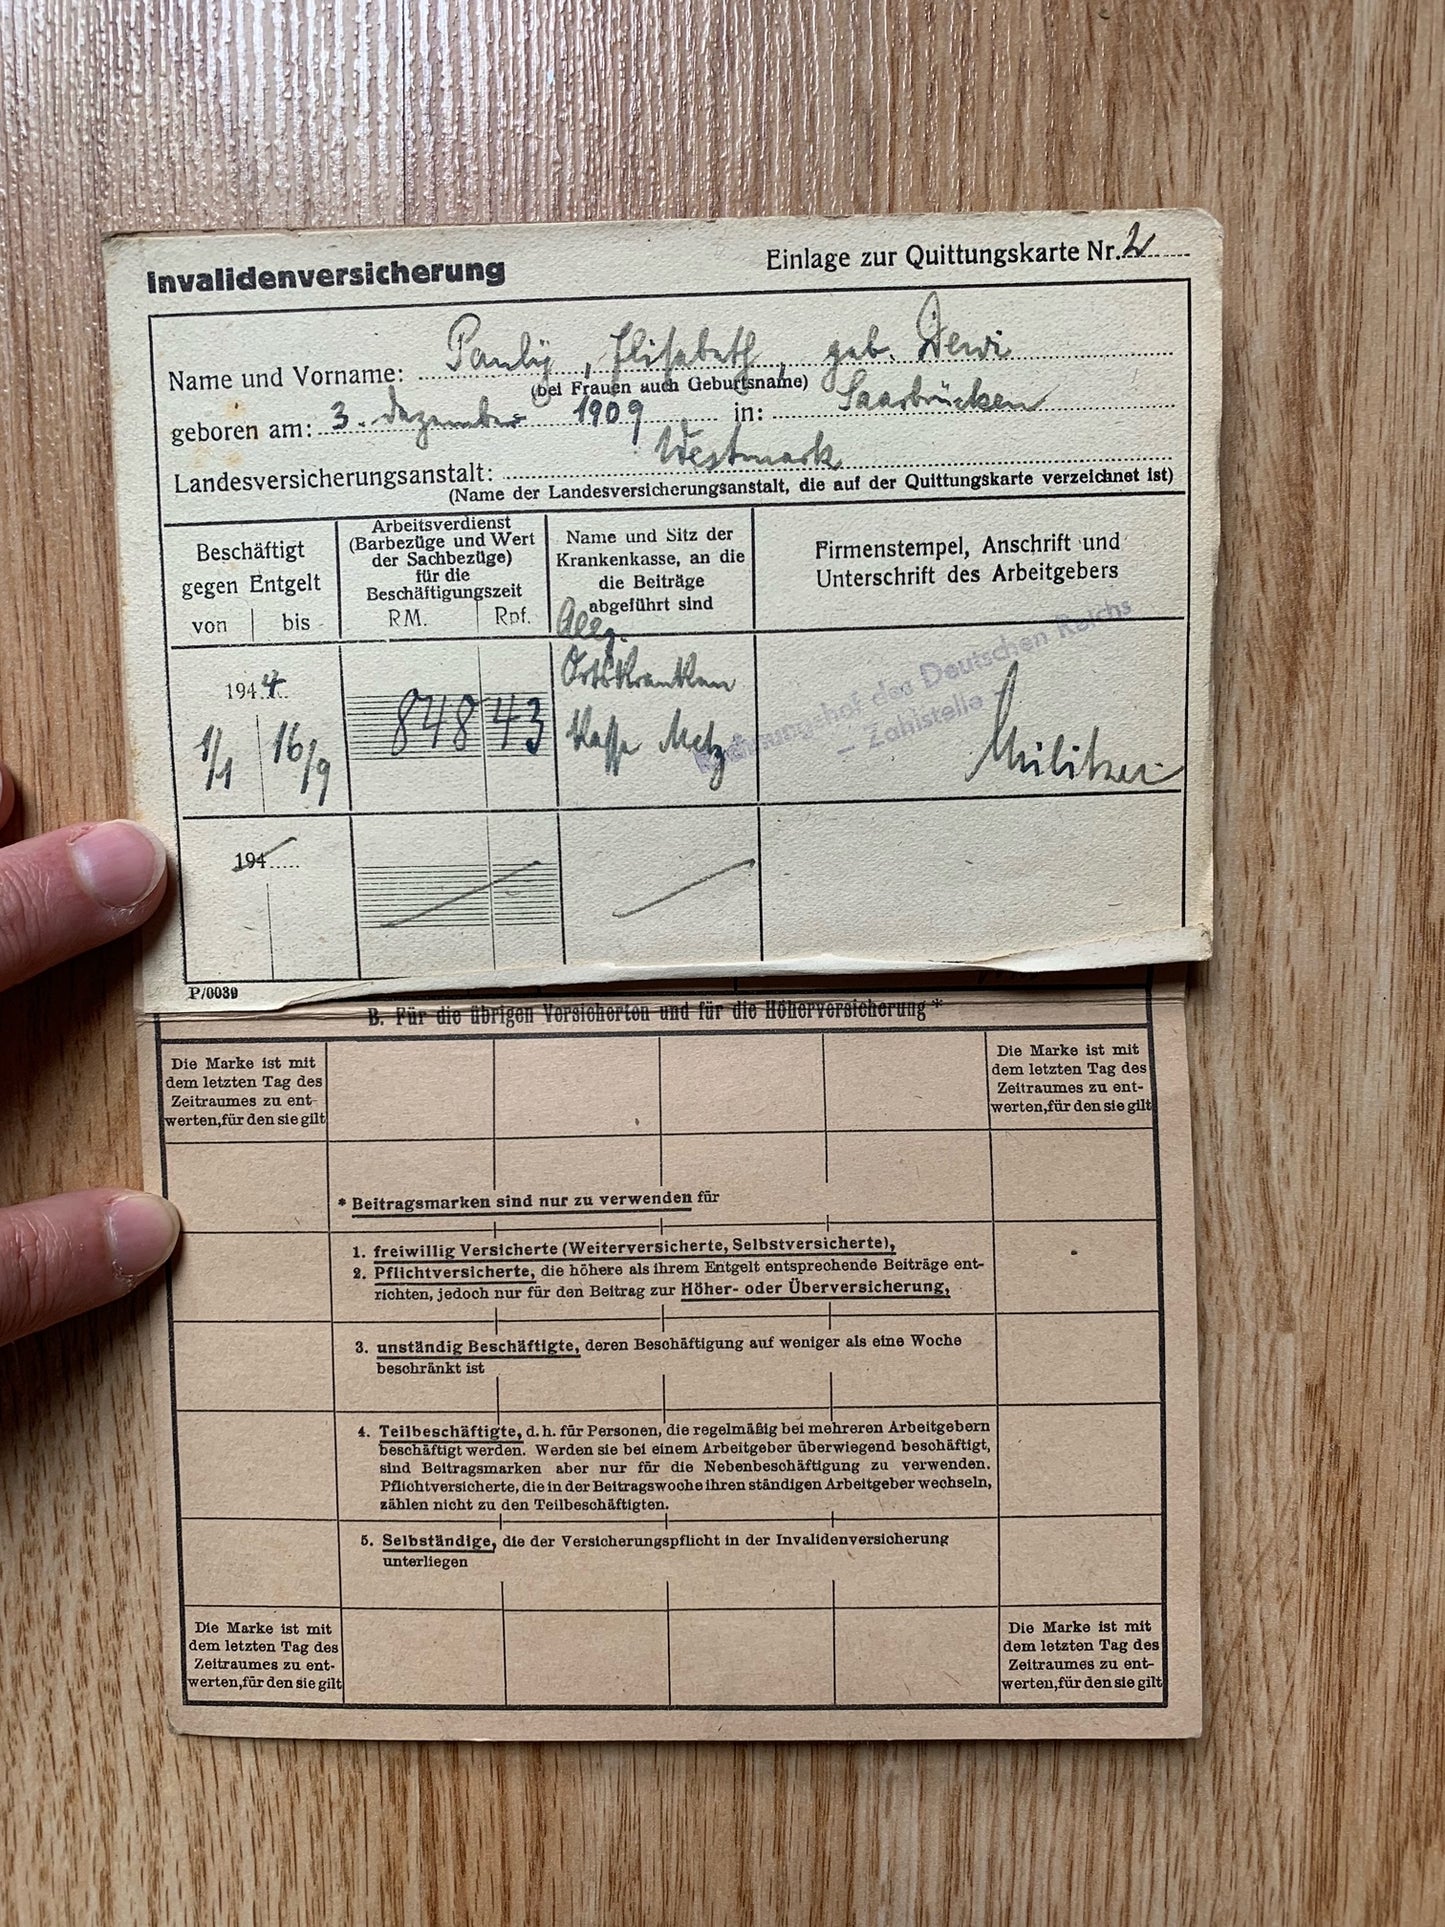 Invalidenversicherung
Einlage zur Quittungskarte Nr. 2
Name und Vorname: Pauly, Elisabeth, geb.
(bei Frauen auch Geburtsname)
geboren am: 3. Dezember 1909 in: Saarbrücken
Landesversicherungsanstalt: Westmark
(Name der Landesversicherungsanstalt, die auf der Quittungskarte verzeichnet ist)
Beschäftigt
gegen Entgelt
von bis
Arbeitsverdienst
(Barbezüge und Wert
der Sachbezüge)
für die
Beschäftigungszeit
RM. Rpf.
Name und Sitz der
Krankenkasse, an die
die Beiträge
abgeführt sind
Firmenstempel, Anschrift und
Unterschrift des Arbeitgebers
1944
1/1 16/9
848 43
Allg.
Ortskranken
kasse Metz
Rechnungshof des Deutschen Reichs
— Zahlstelle —
194
P/0039
B. Für die übrigen Versicherten und für die Höherversicherung *
Die Marke ist mit
dem letzten Tag des
Zeitraumes zu ent-
werten, für den sie gilt
Die Marke ist mit
dem letzten Tag des
Zeitraumes zu ent-
werten, für den sie gilt
* Beitragsmarken sind nur zu verwenden für
1. freiwillig Versicherte (Weiterversicherte, Selbstversicherte),
2. Pflichtversicherte, die höhere als ihrem Entgelt entsprechende Beiträge ent-
richten, jedoch nur für den Beitrag zur Höher- oder Überversicherung,
3. unständig Beschäftigte, deren Beschäftigung auf weniger als eine Woche
beschränkt ist
4. Teilbeschäftigte, d. h. für Personen, die regelmäßig bei mehreren Arbeitgebern
beschäftigt werden. Werden sie bei einem Arbeitgeber überwiegend beschäftigt,
sind Beitragsmarken aber nur für die Nebenbeschäftigung zu verwenden.
Pflichtversicherte, die in der Beitragswoche ihren ständigen Arbeitgeber wechseln,
zählen nicht zu den Teilbeschäftigten.
5. Selbständige, die der Versicherungspflicht in der Invalidenversicherung
unterliegen
Die Marke ist mit
dem letzten Tag des
Zeitraumes zu ent-
werten, für den sie gilt
Die Marke ist mit
dem letzten Tag des
Zeitraumes zu ent-
werten, für den sie gilt